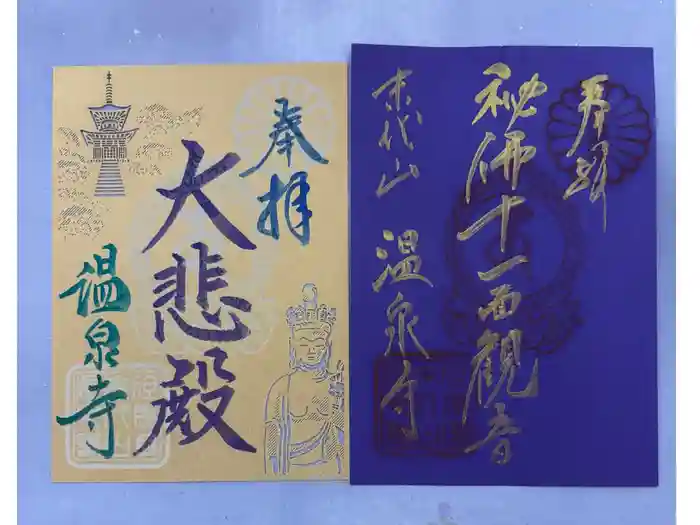 奉拝
大悲殿
温泉寺
奉拝
秘佛十一面観音
末代山
温泉寺